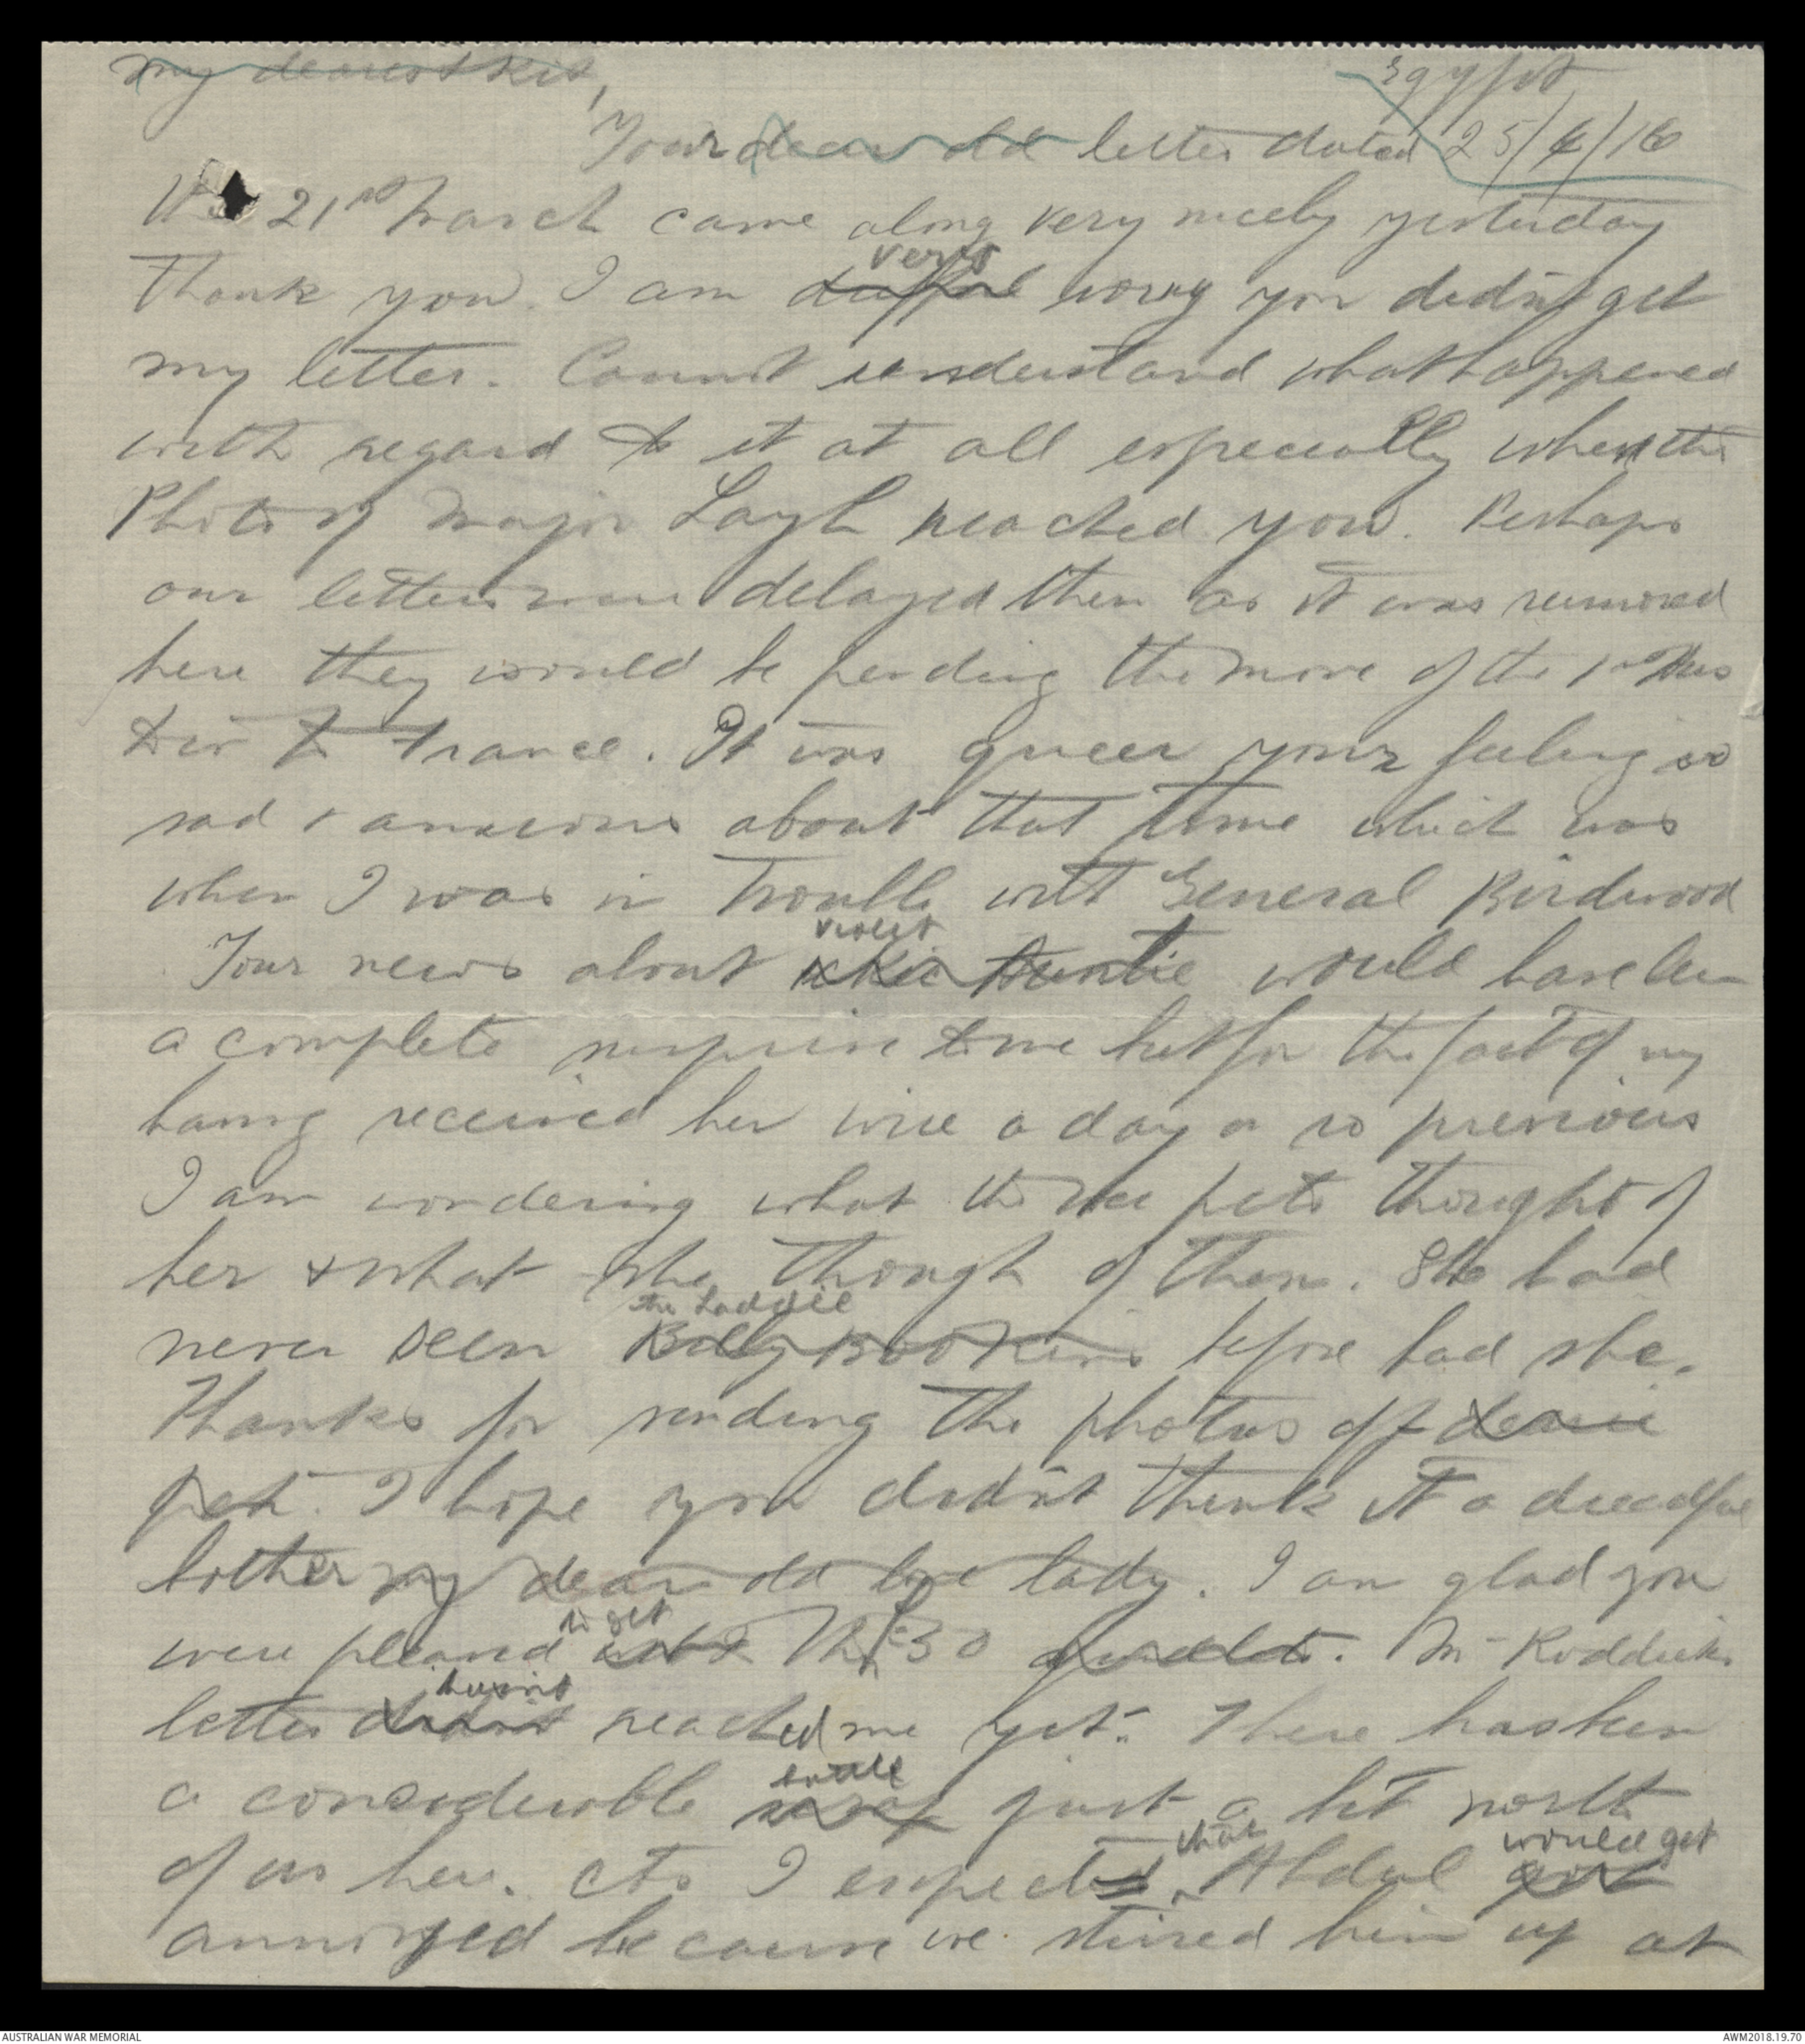 My dearest Kit,
Egypt
25/4/16
Your dear old letter dated
the 21st March came along very nicely yesterday
thank you. I am very awful sorry you didn't get
my letter. Cannot understand what happened
with regard to it at all especially when the
Photo of Major Layh reached you. Perhaps
our letters were delayed then as it was rumored
here they would be pending the move of the 1st Aus
Div to France. It was queer your feeling so
sad & anxious about that time which was
when I was in trouble with General Birdwood
Your news about violet Auntie would have been
a complete surprise to me but for the fact of my
having received her wire a day or so previous
I am wondering what the wee pets thought of
her & what she though of them. She had
never seen the Laddie before had she.
Thanks for sending the photos off dearie
pet. I hope you didn't think it a dreadful
bother my dear old love lady. I am glad you
were pleased to get with the £30 . Mr Roddick's
letter hasn't didn't reached me yet. There has been
a considerable battle scrap just a bit north
of us here. As I expected that Abdul would get got
annoyed because we stirred him up at
AUSTRALIAN WAR MEMORIAL
AWM2018.19.70